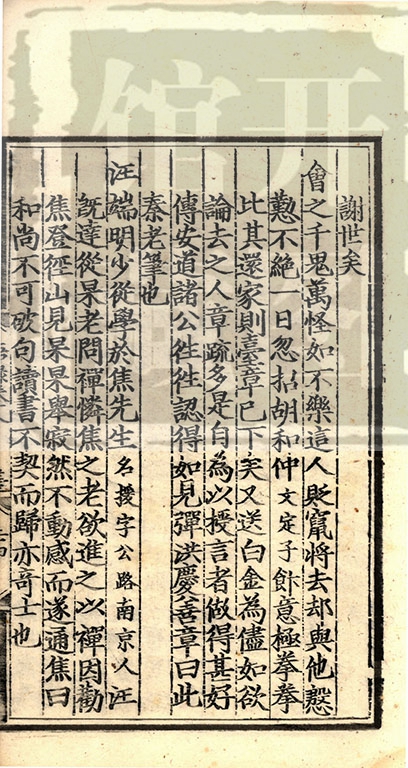 謝世矣
會之千鬼萬怪如不樂這人貶竄將去却與他慇
懃不絶一日忽招胡和仲文定子飰意極拳拳
比其還家則臺章已下矣又送白金為儘如欲
論去之人章疏多是自為以授言者做得甚好
傳安道諸公徃徃認得如見彈洪慶善章曰此
秦老筆也
汪端明少從學於焦先生名援字公路南京人汪
旣達從杲老問禪憐焦之老欲進之以禪因勸
焦登徑山見杲杲舉寂然不動感而遂通焦曰
和尚不可破句讀書不契而歸亦竒士也